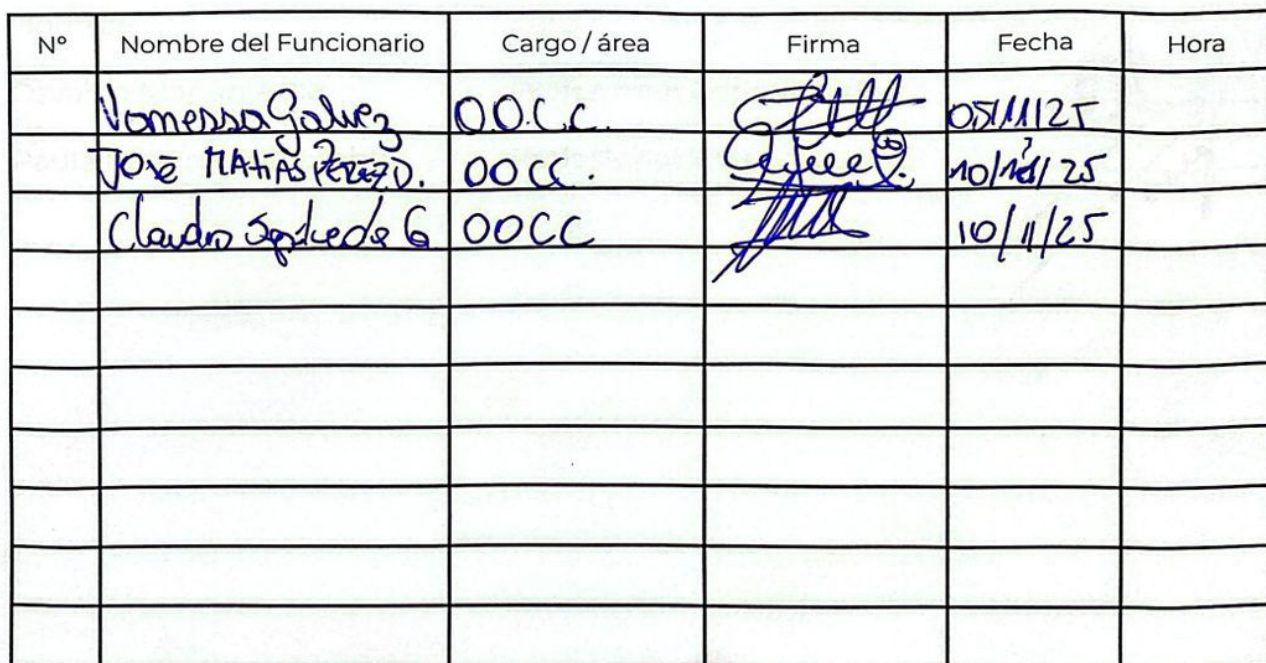 Nº Nombre del Funcionario Cargo / área Firma Fecha Hora
Vanessa Galvez O.O.C.C. 05/11/25
JOSÉ MATIAS PEREZ D. OOCC. 10/11/25
Claudio Sepulveda G OOCC 10/11/25